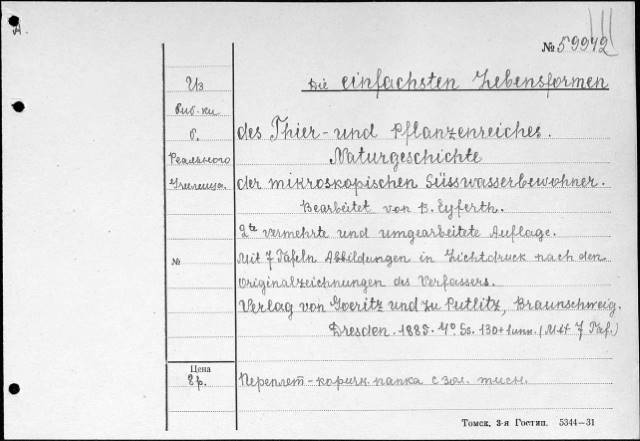 А.
№ 59942
Die einfachsten Lebensformen
Из
биб-ки
б.
Реального
Училища.
des Thier- und Pflanzenreiches.
Naturgeschichte
der mikroskopischen Süsswasserbewohner.
Bearbeitet von B. Eyferth.
2te vermehrte und umgearbeitete Auflage.
№
Mit 7 Tafeln Abbildungen in Lichtdruck nach den
Originalzeichnungen des Verfassers.
Verlag von Goeritz und zu Putlitz, Braunschweig.
Dresden. 1885. 4°. Ss. 130+1unn. (Mit 7 Taf.)
Цена
Переплет-коричн. папка с зол. тисн.
Томск, 3-я Гостип. 5344—31